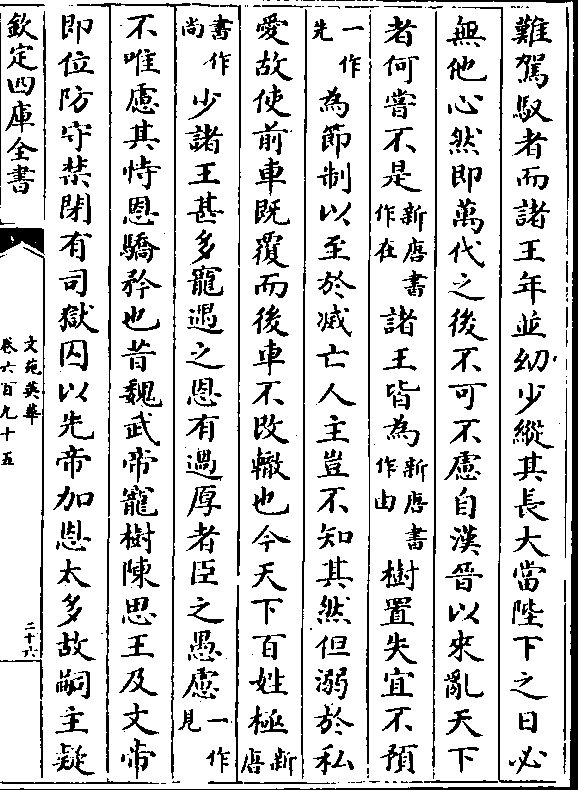 難駕馭者而諸王年並幼少縱其長大當陛下之日必
無他心然即萬代之後不可不慮自漢晉以來亂天下
者何嘗不是新唐書作在諸王皆為新唐書作由樹置失宜不預
一作先為節制以至於滅亡人主豈不知其然但溺於私
愛故使前車既覆而後車不改轍也今天下百姓極新唐
書作尚少諸王甚多寵遇之恩有過厚者臣之愚慮一作見
不唯慮其恃恩驕矜也昔魏武帝寵樹陳思王及文帝
即位防守禁閉有司獄囚以先帝加恩太多故嗣主疑
欽定四庫全書
文苑英華
卷六百九十五
二十六